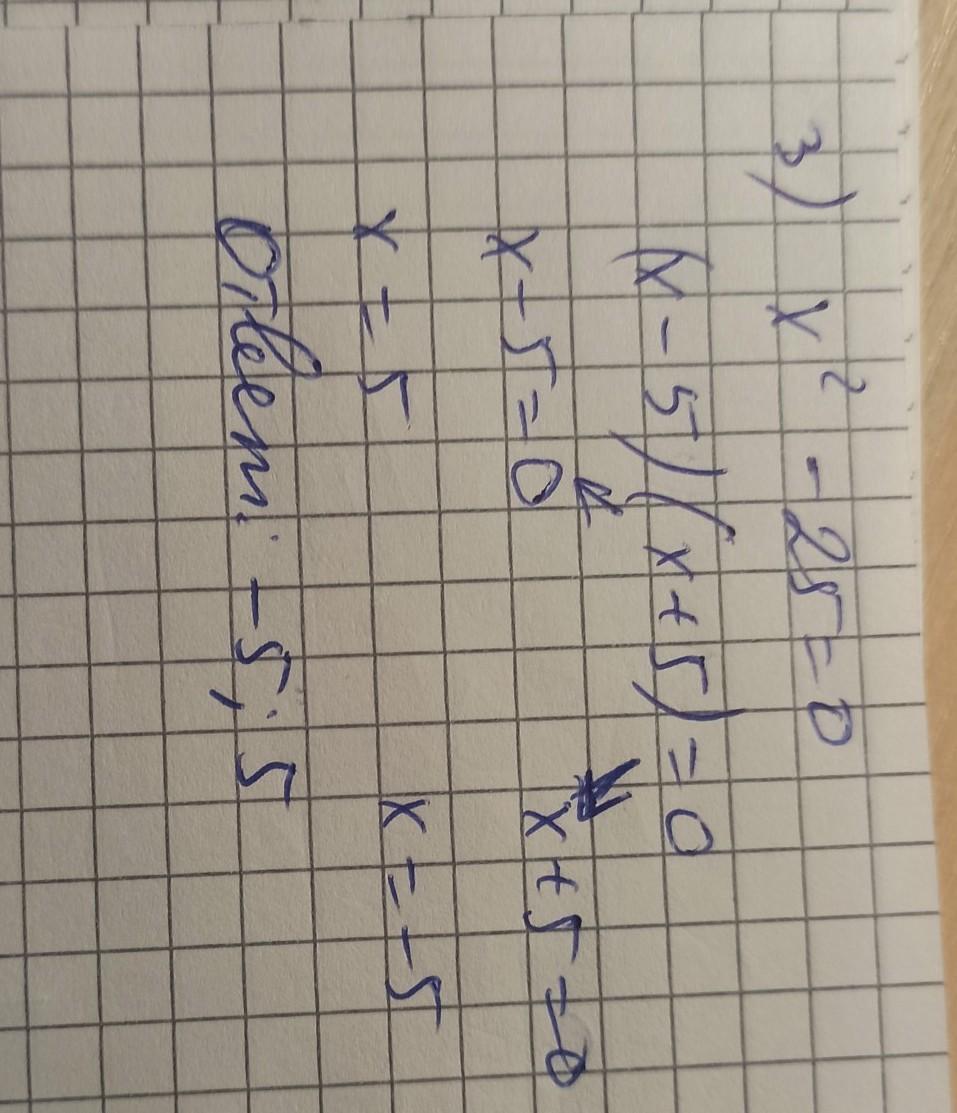 3) x² - 25 = 0
(x - 5)(x + 5) = 0
x - 5 = 0 x + 5 = 0
x = 5 x = -5
Ответ: -5; 5